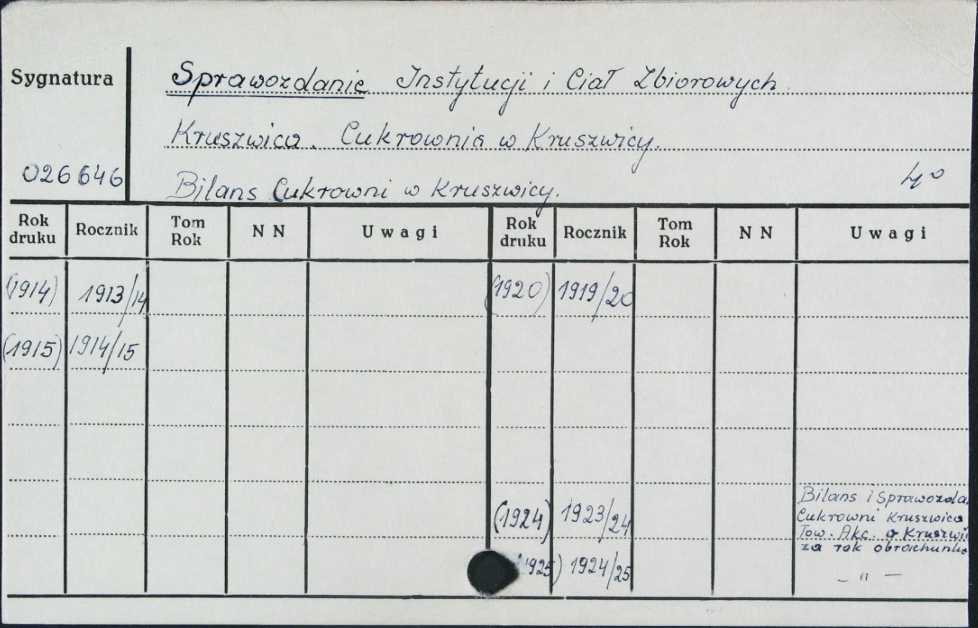 Sygnatura
Sprawozdanie Instytucji i Ciał Zbiorowych.
Kruszwica. Cukrownia w Kruszwicy.
026646
Bilans Cukrowni w Kruszwicy.
4°
Rok druku Rocznik Tom Rok N N Uwagi Rok druku Rocznik Tom Rok N N Uwagi
(1914) 1913/14 (1920) 1919/20
(1915) 1914/15
(1924) 1923/24 Bilans i Sprawozda
Cukrowni Kruszwica
Tow. Akc. Kruszwi
za rok obrachunko
1925) 1924/25 – " –